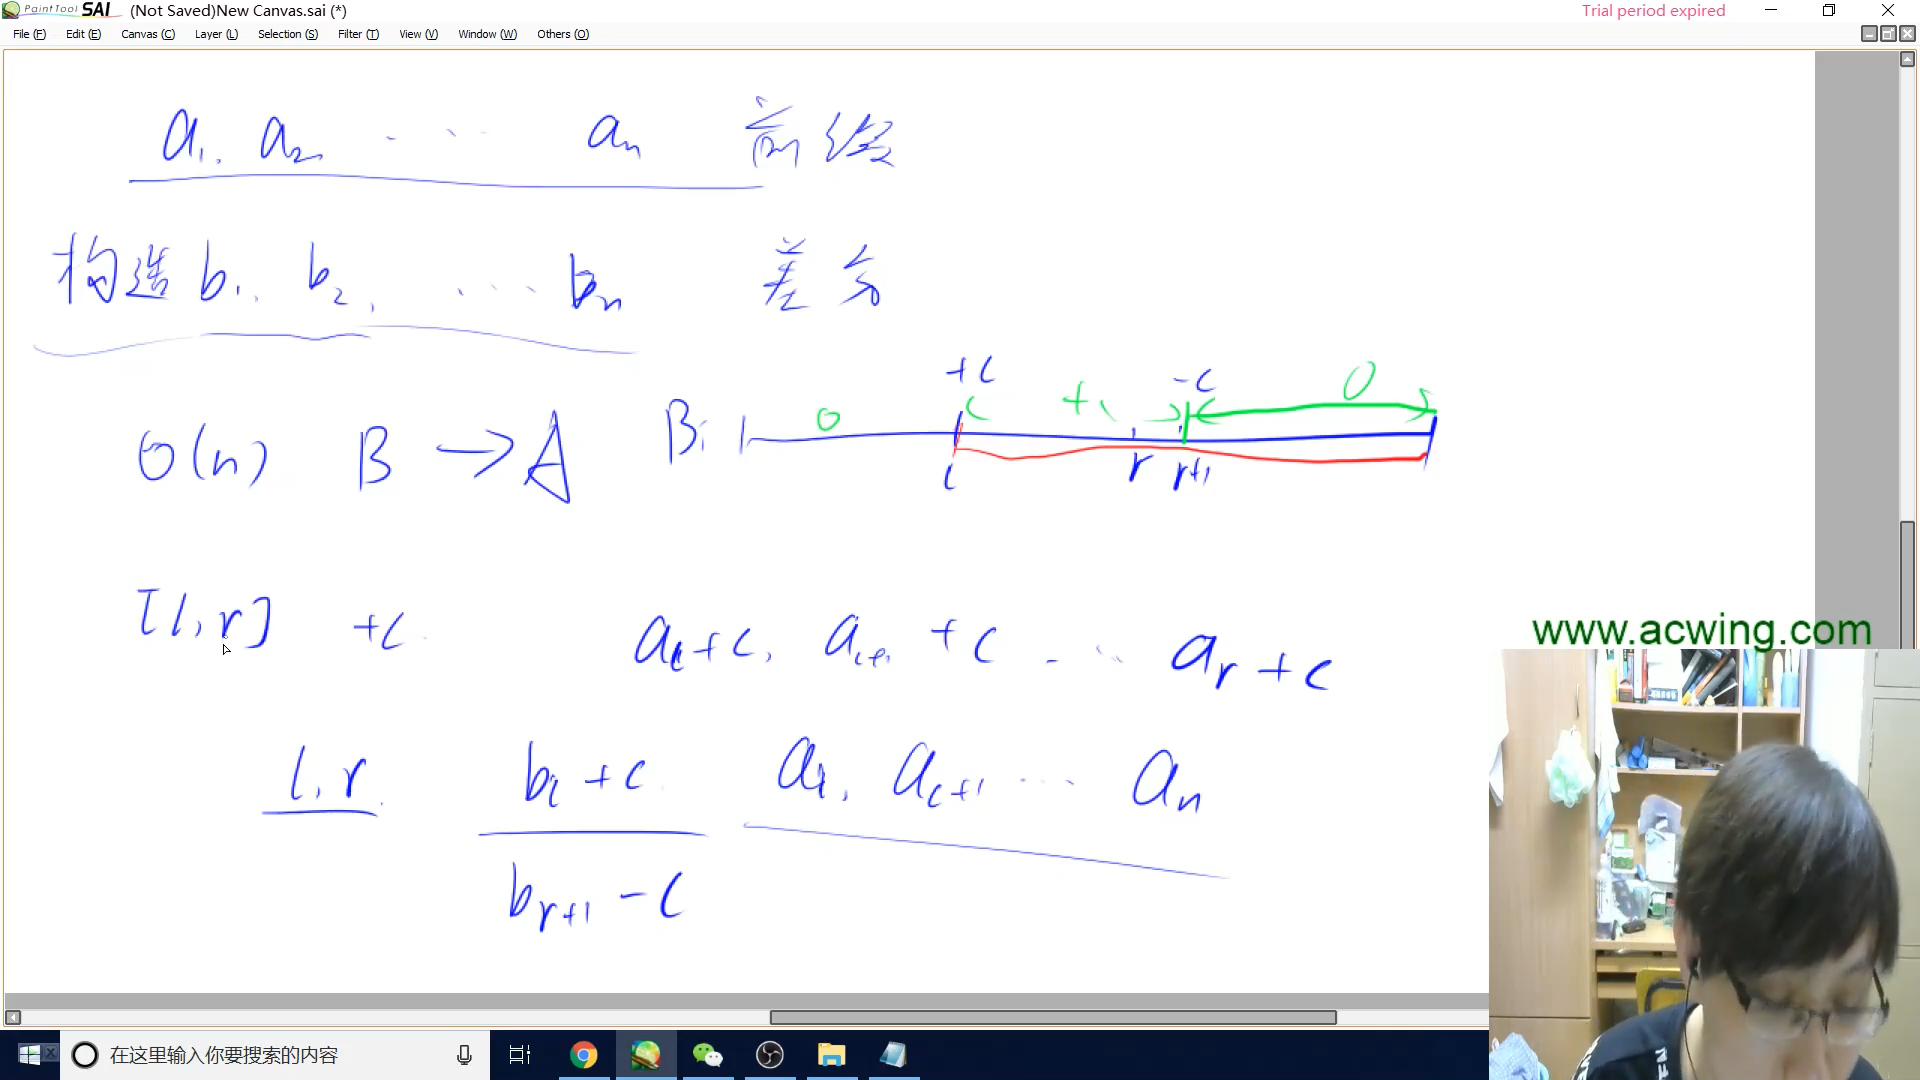 PaintTool SAI (Not Saved)New Canvas.sai (*) Trial period expired
File (F) Edit (E) Canvas (C) Layer (L) Selection (S) Filter (T) View (V) Window (W) Others (O)
a₁, a₂ ... aₙ 前缀
构造 b₁, b₂, ... bₙ 差分
+c -c 0
O(n) B → A B: 0 +c
l r r+1
[l, r] +c aₗ+c, aₗ₊₁+c ... aᵣ+c
www.acwing.com
l, r bₗ+c aₗ, aₗ₊₁ ... aₙ
bᵣ₊₁ - c
在这里输入你要搜索的内容